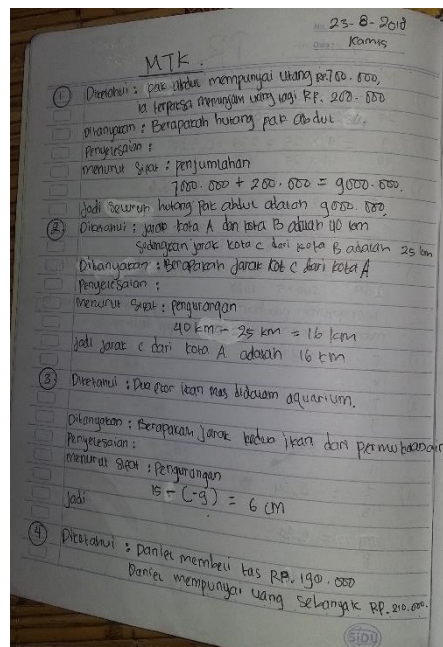 No: 23-8-2018
Date: Kamis
MTK.
1 Diketahui : pak abdul mempunyai utang Rp.700.000,
ia terpaksa meminjam uang lagi RP. 200.000
Ditanyakan : Berapakah hutang pak abdul
Penyelesaian :
menurut sipat : penjumlahan
7000.000 + 200.000 = 9000.000.
Jadi seluruh hutang Pak abdul adalah 9000.000,
2 Diketahui : Jarak kota A dan kota B adalah 40 km
sedangkan jarak kota C dari kota B adalah 25 km
Ditanyakan : Berapakah Jarak kot C dari kota A
Penyelesaian :
menurut sipat : pengurangan
40 km - 25 km = 16 km
Jadi Jarak C dari kota A adalah 16 km
3 Diketahui : Dua ekor ikan mas didalam aquarium.
Ditanyakan : Berapakah Jarak kedua ikan dari permukaan
Penyelesaian :
menurut sipat : Pengurangan
15 - (-9) = 6 cm
Jadi
4 Diketahui : Daniel membeli tas RP. 190.000
Daniel mempunyai uang sebanyak RP. 210.000.
SIDU